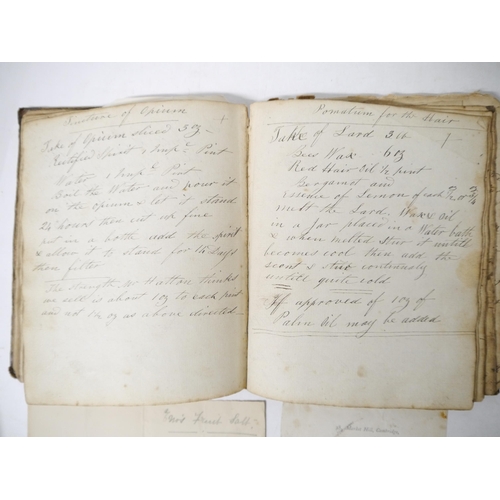 Tincture of Opium
Take of Opium sliced 3 oz
Rectified Spirit 1 Imp. Pint
Water 1 Imp. Pint
Boil the Water and pour it
on the opium & let it stand
24 hours then cut up fine
put in a bottle add the spirit
& allow it to stand for 14 days
then filter
The strength Mr Hatton thinks
we sell is about 1 oz to each pint
and not 1½ oz as above directed
Pomatum for the Hair
Take of Lard 3 lb
Bees Wax 6 oz
Red Hair Oil ½ pint
Bergamot and
Essence of Lemon of each
melt the Lard, Wax & Oil
in a jar placed in a Water bath
& when melted stir it untill
becomes cool then add the
scent & stir continualy
untill quite cold
If approoved of 1 oz of
Palm Oil may be added
Fruit Salt